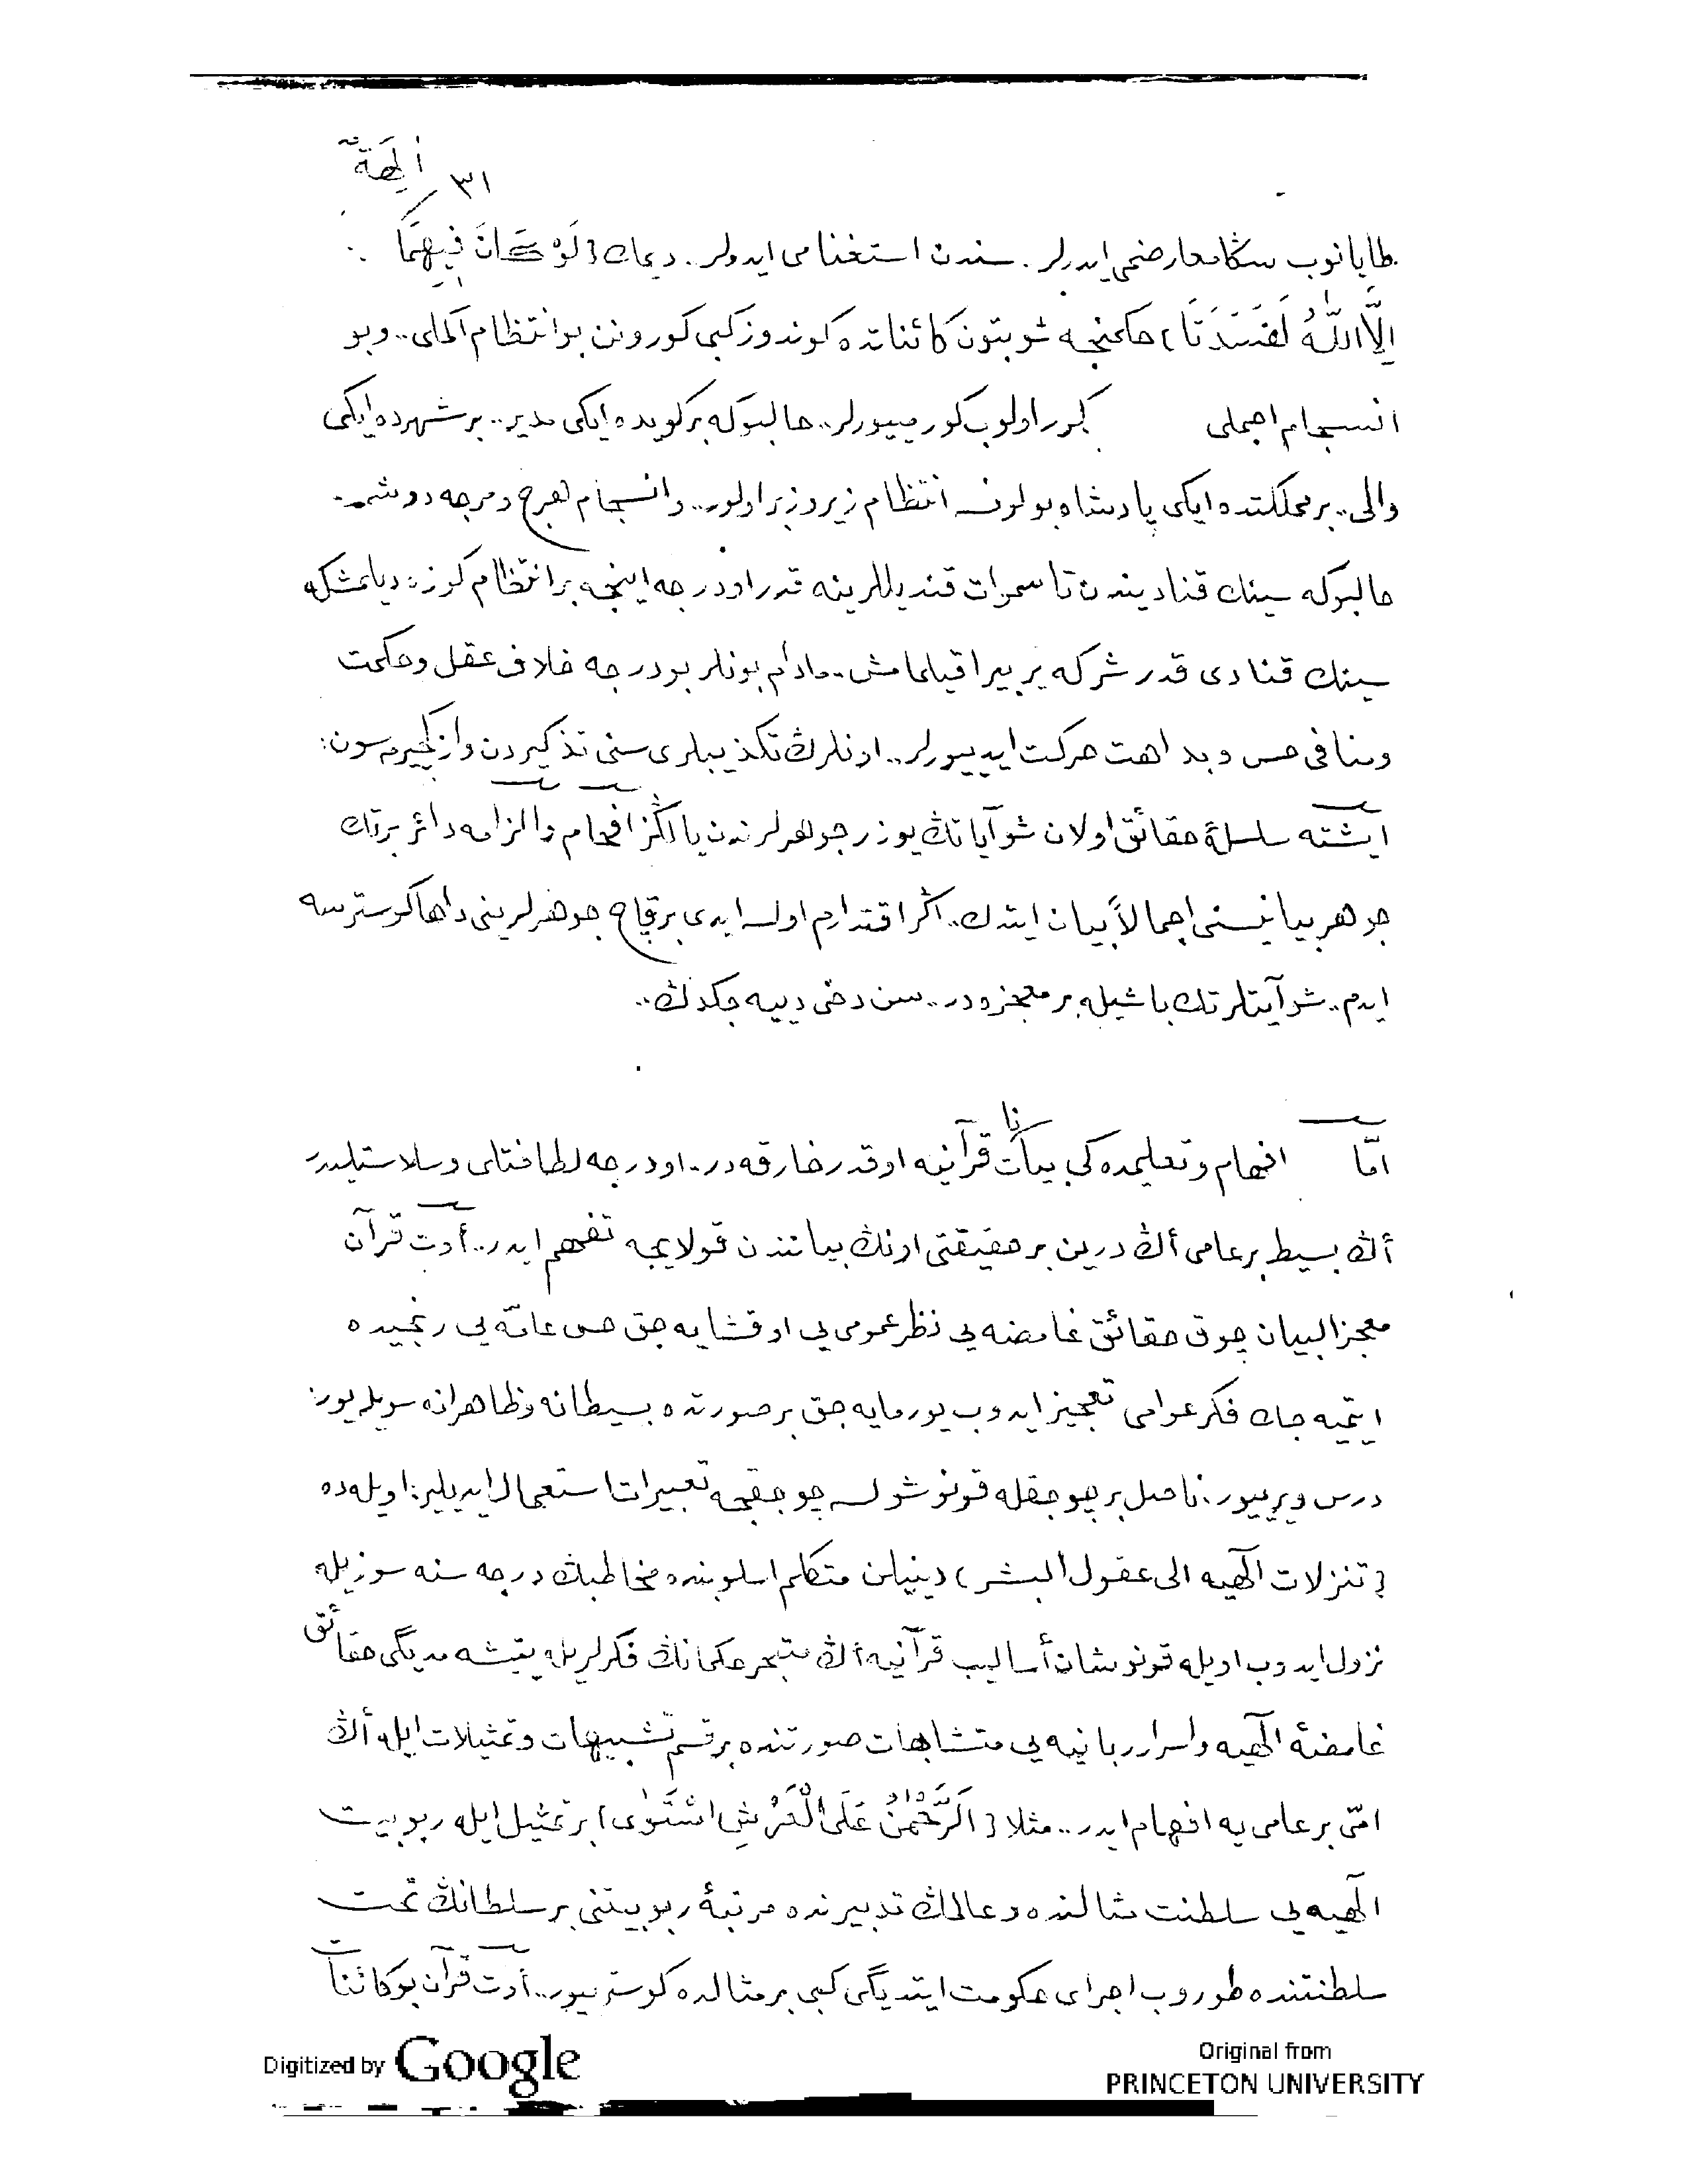 ٣١
اٰلِهَةٌ
طایانوب سڭا معارضمی ایدرلر. سندن استغنا می ایدولر. دیمك {لَوْ كَانَ فِيهِمَا
اِلَّا اللّٰهُ لَفَسَدَتَا} حكمنجه شو بتون كائناتده كوندوز كبی كورونن بو انتظام اكملی.. و بو
انسجام اجملی كور اولوب كورمییورلر.. حالبوكه بر كویده ایكی مدیر.. بر شهرده ایكی
والی.. بر مملكتده ایكی پادشاه بولونسه انتظام زیر و زبر اولور.. و انسجام هرج و مرجه دوشر.
حالبوكه سینك قنادیندن تا سموات قندیللرینه قدر او درجه اینجه بر انتظام كوزه دیلمشكه
سینك قنادی قدر شركه یر بیراقیلمامش.. مادام بونلر بو درجه خلاف عقل و حكمت
و منافی حس و بداهت حركت ایدییورلر.. اونلرڭ تكذیبلری سنی تذكیردن وازكچیرمه سون:
ایشته سلسلۀ حقائق اولان شو آیاتڭ یوزر جوهرلرندن یالڭز افهام و الزامه دائر بر تك
جوهر بیانیسنی اجمالاً بیان ایتدك.. اگر اقتدارم اولسه ایدی بر قاچ جوهرلرینی داها كوسترسه
ایدم.. شو آیتلر تك باشیله بر معجزه در.. سن دخی دییه جكدڭ..
امّا افهام و تعلیمده كی بیانات قرآنیه او قدر خارقه در.. او درجه لطافتلی و سلاستلیدر
أڭ بسیط بر عامی أڭ درین بر حقیقتی اونڭ بیانندن قولایجه تفهم ایدر.. أوت قرآن
معجز البیان چوق حقائق غامضه یی نظر عمومی یی اوقشایه جق حس عامّه یی رنجیده
ایتمیه جك فكر عوامی تعجیز ایدوب یورمایه جق بر صورتده بسیطانه و ظاهرانه سویله یور:
درس ویرییور: ناصل بر چوجقله قونوشولسه چوجقجه تعبیرات استعمال ایدیلیر: اویله ده
{تنزلات الٓهیه الی عقول البشر} دینیلن متكلم اسلوبنده مخاطبڭ درجه سنه سوزیله
نزول ایدوب اویله قونوشان أسالیب قرآنیه أڭ متبحر حكمانڭ فكرلریله یتیشه مدیگی حقائق
غامضۀ الٓهیه و اسرار ربانیه یی متشابهات صورتنده بر قسم تشبیهات و تمثیلات ایله أڭ
امّی بر عامی یه افهام ایدر.. مثلا {اَلرَّحْمٰنُ عَلَى الْعَرْشِ اسْتَوٰى} بر تمثیل ایله ربوبیت
الٓهیه یی سلطنت مثالنده و عالمڭ تدبیرنده مرتبۀ ربوبیتنی بر سلطانڭ تخت
سلطنتنده طوروب اجرای حكومت ایتدیگی كبی بر مثالده كوسترییور.. أوت قرآن بو كائنات
Digitized by Google
Original from
PRINCETON UNIVERSITY